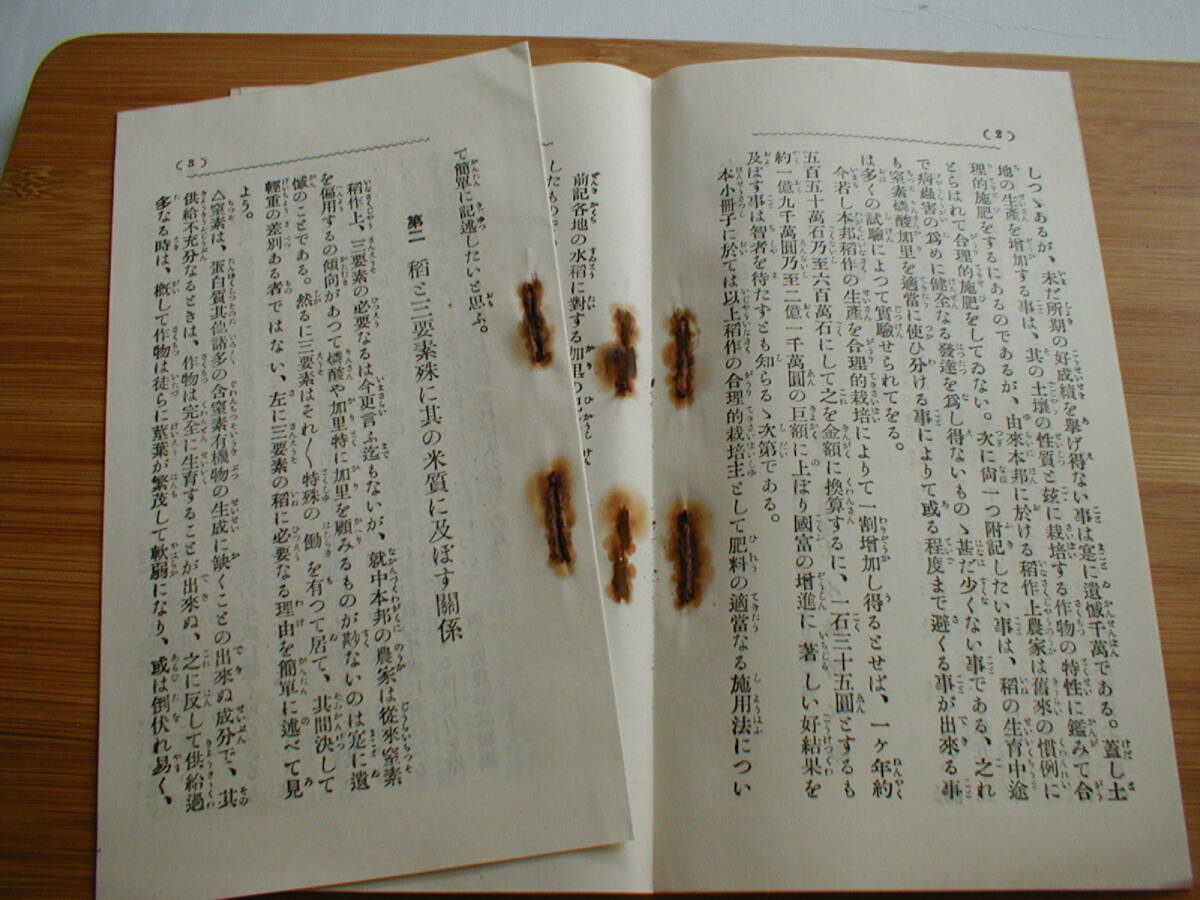 (2)
しつゝあるが、未だ所期の好成績を擧げ得ない事は寔に遺憾千萬である。蓋し土
地の生產を增加する事は、其の土壤の性質と玆に栽培する作物の特性に鑑みて合
理的施肥をするにあるのであるが、由來本邦に於ける稻作上農家は舊來の慣例に
とらはれて合理的施肥をしてゐない。次に尙一つ附記したい事は、稻の生育中途
で病蟲害の爲めに健全なる發達を爲し得ないものゝ甚だ少くない事である、之れ
も窒素燐酸加里を適當に使ひ分ける事によりて或る程度まで避くる事が出來る事
は多くの試驗によつて實驗せられてをる。
今若し本邦稻作の生產を合理的栽培によりて一割增加し得るとせば、一ヶ年約
五百五十萬石乃至六百萬石にして之を金額に換算するに、一石三十五圓とするも
約一億九千萬圓乃至二億一千萬圓の巨額に上ぼり國富の增進に著しい好結果を
及ぼす事は智者を待たずとも知らるゝ次第である。
本小冊子に於ては以上稻作の合理的栽培主として肥料の適當なる施用法につい
前記各地の水稻に對する加里の
したもの
(3)
て簡單に記述したいと思ふ。
第二 稻と三要素殊に其の米質に及ぼす關係
稻作上、三要素の必要なるは今更言ふ迄もないが、就中本邦の農家は從來窒素
を偏用するの傾向があつて燐酸や加里特に加里を顧みるものが尠ないのは寔に遺
憾のことである。然るに三要素はそれ〲特殊の働を有つて居て、其間決して
輕重の差別ある者ではない、左に三要素の稻に必要なる理由を簡單に述べて見
よう。
△窒素は、蛋白質其他諸多の含窒素有機物の生成に缺くことの出來ぬ成分で、其
供給不充分なるときは、作物は完全に生育することが出來ぬ、之に反して供給過
多なる時は、概して作物は徒らに莖葉が繁茂して軟弱になり、或は倒伏れ易く、